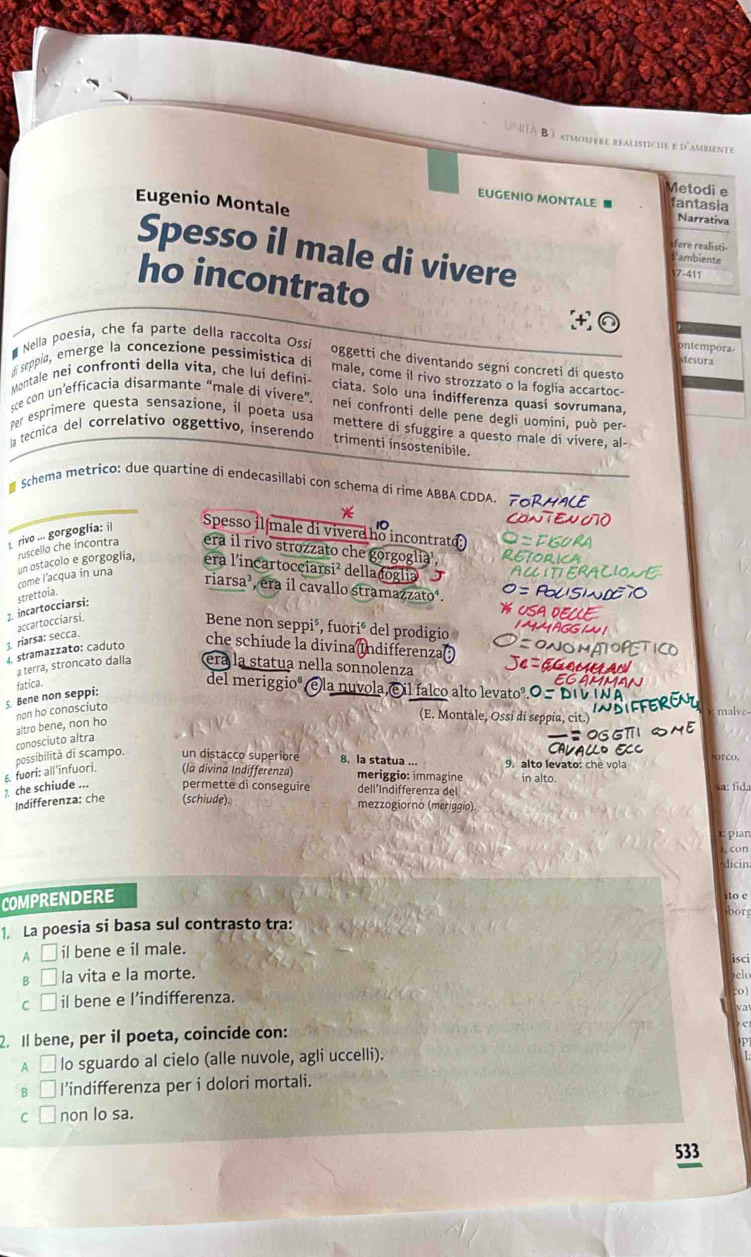 UNITÀ B3 ATMOSFERE REALISTICHE E D'AMBIENTE
EUGENIO MONTALE
Metodi e
fantasia
Narrativa
sfere realisti-
d'ambiente
37-411
ontempora-
stesura
Eugenio Montale
Spesso il male di vivere
ho incontrato
Nella poesia, che fa parte della raccolta Ossi
di seppia, emerge la concezione pessimistica di
Montale nei confronti della vita, che lui defini-
sce con un'efficacia disarmante "male di vivere".
Per esprimere questa sensazione, il poeta usa
la tecnica del correlativo oggettivo, inserendo
oggetti che diventando segni concreti di questo
male, come il rivo strozzato o la foglia accartoc-
ciata. Solo una indifferenza quasi sovrumana,
nei confronti delle pene degli uomini, può per-
mettere di sfuggire a questo male di vivere, al-
trimenti insostenibile.
Schema metrico: due quartine di endecasillabi con schema di rime ABBA CDDA.
Spesso il male di vivere ho incontrato:
era il rivo strozzato che gorgoglia¹,
era l'incartocciarsi² della foglia
riarsa³, era il cavallo stramazzato⁴.
Bene non seppi⁵, fuori⁶ del prodigio
che schiude la divina Indifferenza⁷:
era la statua nella sonnolenza
del meriggio⁸, e la nuvola, e il falco alto levato⁹.
(E. Montale, Ossi di seppia, cit.)
IO
FORMALE
CONTENUTO
O = FIGURA
RETORICA
ALLITTERAZIONE
O = POLISINDETO
* USA DELLE
IMMAGGINI
O = ONOMATOPETICO
EGAMMAN
O = DIVINA
INDIFFERENZ
= OGGETTI COME
CAVALLO ECC
1. rivo ... gorgoglia: il
ruscello che incontra
un ostacolo e gorgoglia,
come l'acqua in una
strettoia.
2. incartocciarsi:
accartocciarsi.
3. riarsa: secca.
4. stramazzato: caduto
a terra, stroncato dalla
fatica.
5. Bene non seppi:
non ho conosciuto
altro bene, non ho
conosciuto altra
possibilità di scampo.
6. fuori: all'infuori.
7. che schiude ...
Indifferenza: che
un distacco superiore
(la divina Indifferenza)
permette di conseguire
(schiude).
8. la statua ...
meriggio: immagine
dell'Indifferenza del
mezzogiorno (meriggio).
9. alto levato: che vola
in alto.
malve-
orco,
sa: fida
pian
con
dicin
to e
borg
isci
clo
to)
vav
COMPRENDERE
1. La poesia si basa sul contrasto tra:
A il bene e il male.
B la vita e la morte.
C il bene e l'indifferenza.
2. Il bene, per il poeta, coincide con:
A lo sguardo al cielo (alle nuvole, agli uccelli).
B l'indifferenza per i dolori mortali.
C non lo sa.
533